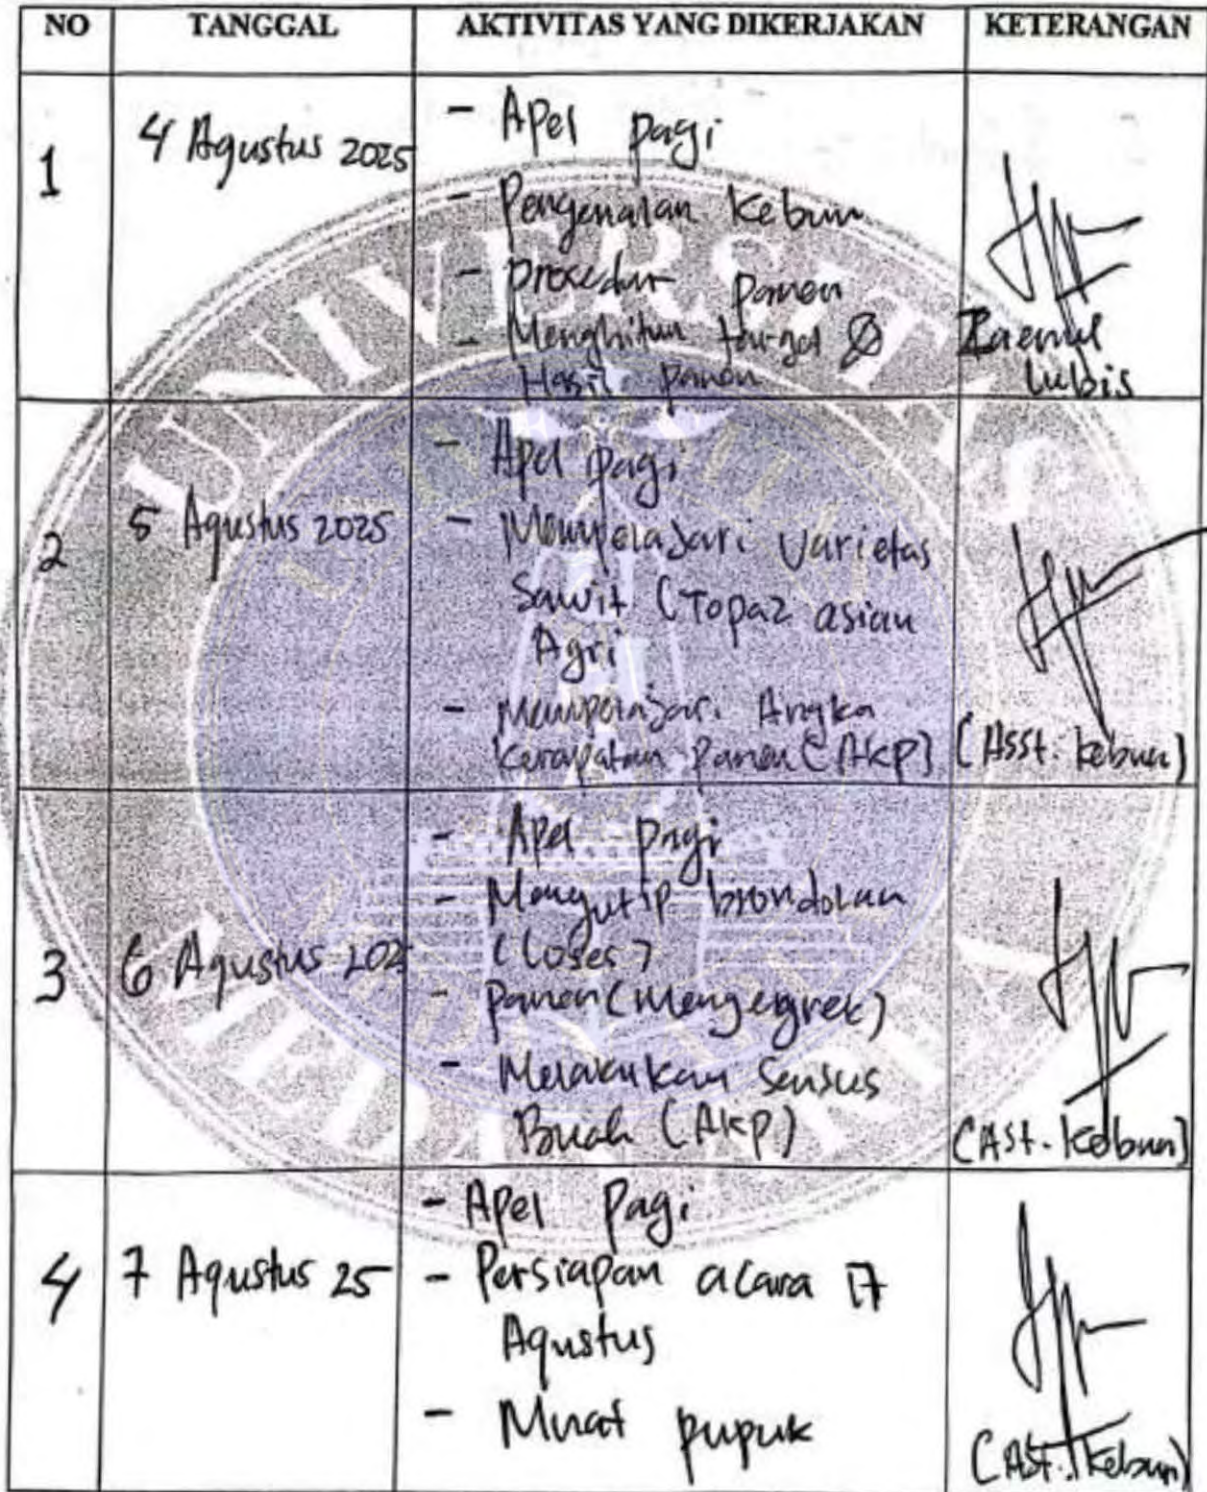 NO TANGGAL AKTIVITAS YANG DIKERJAKAN KETERANGAN
1 4 Agustus 2025
- Apel pagi
- Pengenalan Kebun
- prosedur panen
- Menghitun target
Hasil panen
Lubis
2 5 Agustus 2025
- Apel pagi
- Mempelajari Varietas
Sawit (Topaz asian
Agri
- Mempelajari Angka
Kerapatan Panen (AKP)
(Asst. kebun)
3 6 Agustus 202
- Apel pagi
- Mengutip brondolan
(Loses)
- panen (Mengegrek)
- Melakukan Sensus
Buah (AKP)
(Ast. Kebun)
4 7 Agustus 25
- Apel Pagi
- Persiapan acara 17
Agustus
- Muat pupuk
(Ast. Kebun)
UNIVERSITAS
MEDAN AREA